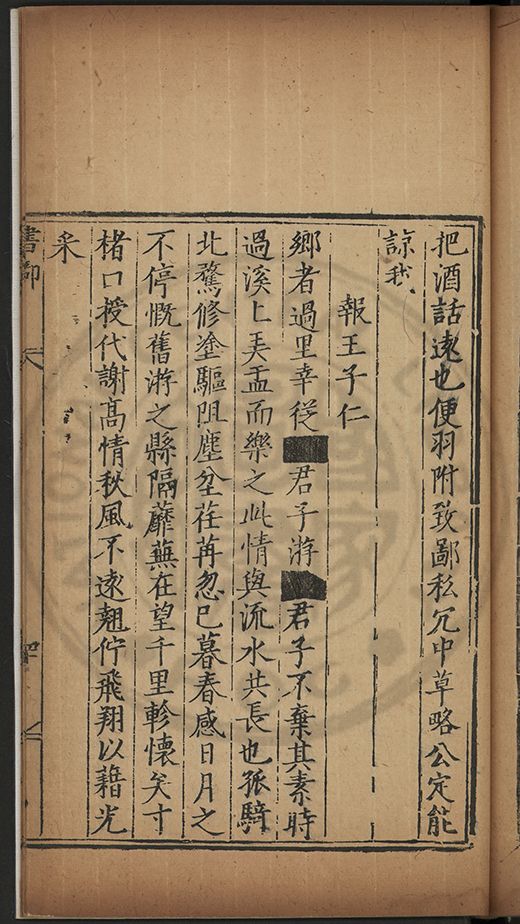 把酒話遠也便羽附致鄙私冗中草略公定能
諒我
報王子仁
鄉者過里幸從■君子游■君子不棄其素時
過溪上弄盂而樂之此情與流水共長也孤騎
北驁修塗驅阻塵坌荏苒忽已暮春感日月之
不停慨舊游之縣隔蘼蕪在望千里軫懷矣寸
楮口授代謝高情秋風不遠翹佇飛翔以藉光
采